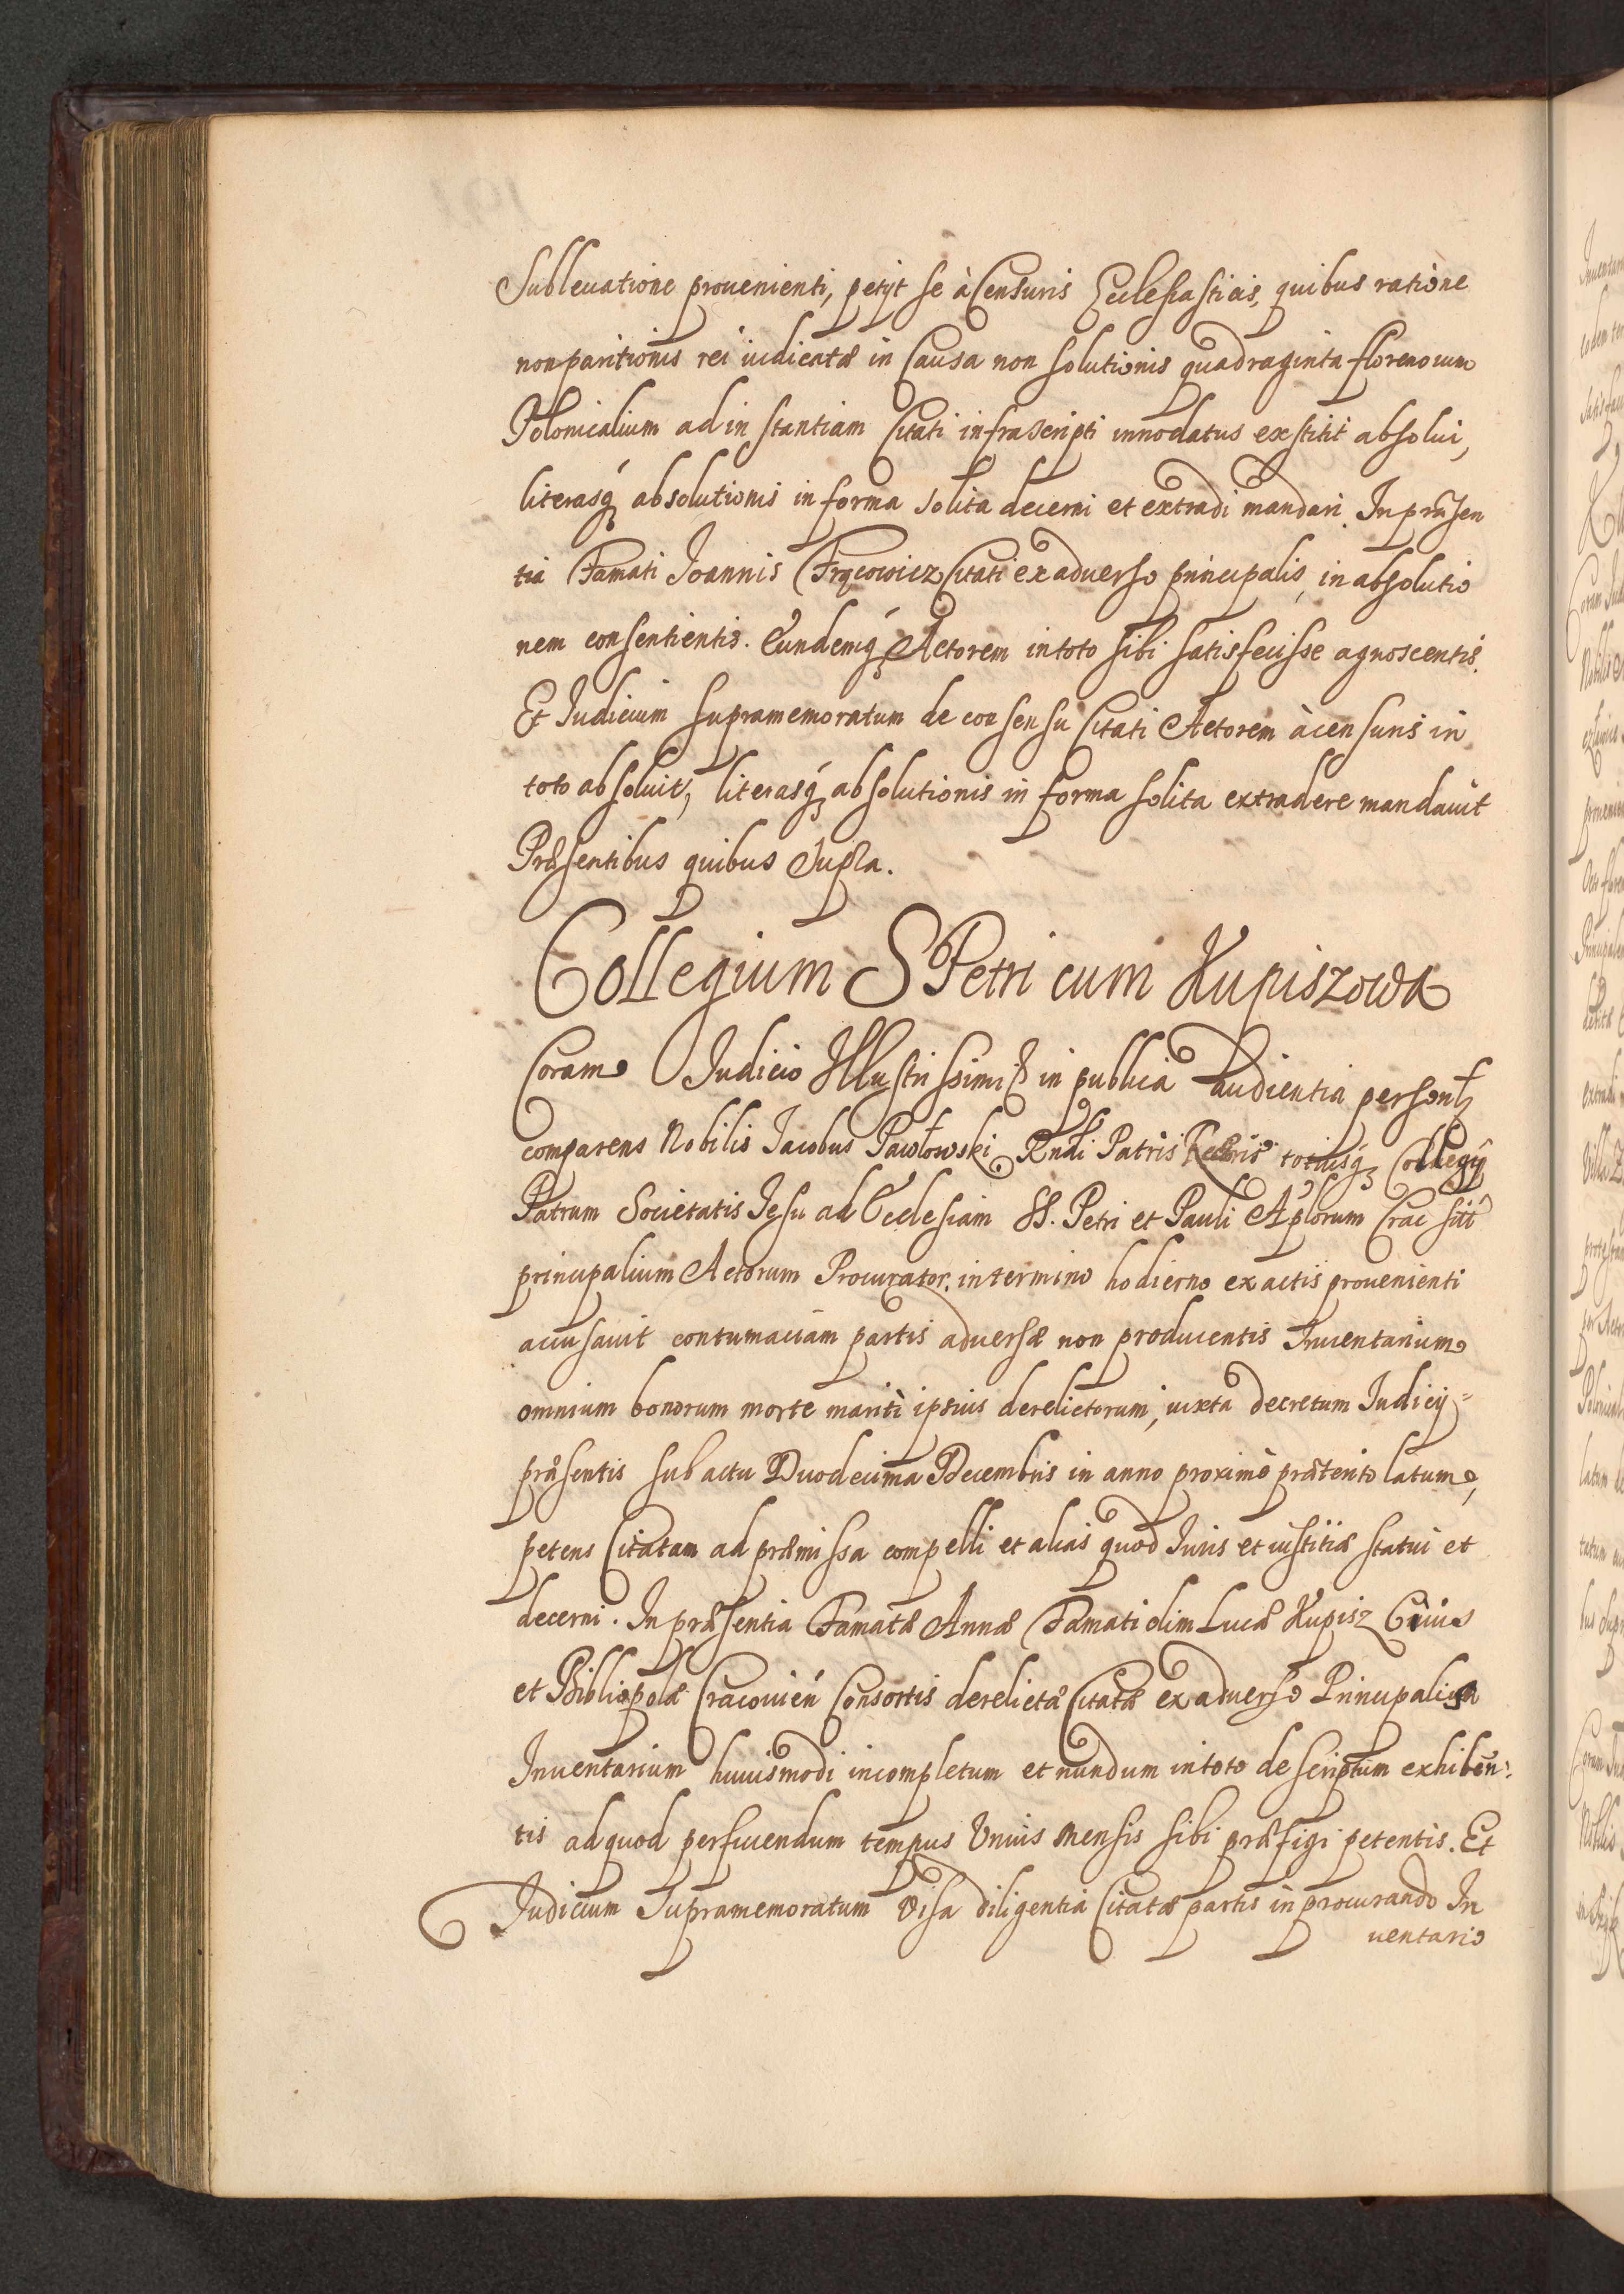 Subleuatione prouenienti, petijt se à Censuris Ecclesiasticis, quibus ratione
nonparitionis rei iudicatæ in Causa non solutionis quadraginta florenorum
Polonicalium ad instantiam Citati infrascripti innodatus exstitit absolui,
literasq́ absolutionis in forma solita decerni et extradi mandari. In præsen
tia Famati Joannis Frącowicz Citati ex aduerso principalis, in absolutio
nem consentientis. Eundemq́ Actorem in toto sibi satisfecisse agnoscentis.
Et Iudicium supramemoratum de consensu Citati Actorem à censuris in
toto absoluit, literasq́ absolutionis in forma solita extradere mandauit
Præsentibus quibus supra.
Collegium S Petri cum Kupiszowa
Coram Iudicio Illustrissimi in publica audientia personlr
comparens Nobilis Iacobus Pawłowski Rndi Patris Rectoris totiusq́ Collegij
Patrum Societatis Iesu ad Ecclesiam SS. Petri et Pauli Aplorum Crac sitt
principalium Actorum Procurator, in termino hodierno ex actis prouenienti
accusauit contumaciam partis aduersæ non producentis Inuentarium
omnium bonorum morte mariti ipsius derelictorum, iuxta decretum Iudicij
præsentis sub actu Duodecima Decembris in anno proximè præterito latum,
petens Citatam ad præmissa compelli et alias quod Iuris et iustitiæ statui et
decerni. In præsentia Famatæ Annæ Famati olim Lucæ Kupisz Ciuis
et Bibliopolæ Cracouień Consortis derelictæ Citatæ ex aduerso Principalis
Inuentarium huiusmodi incompletum et nundum in toto descriptum exhiben:
tis ad quod perficiendum tempus Vnius mensis sibi præfigi petentis. Et
Iudicium supramemoratum visa diligentia Citatæ partis in procurando In
uentario